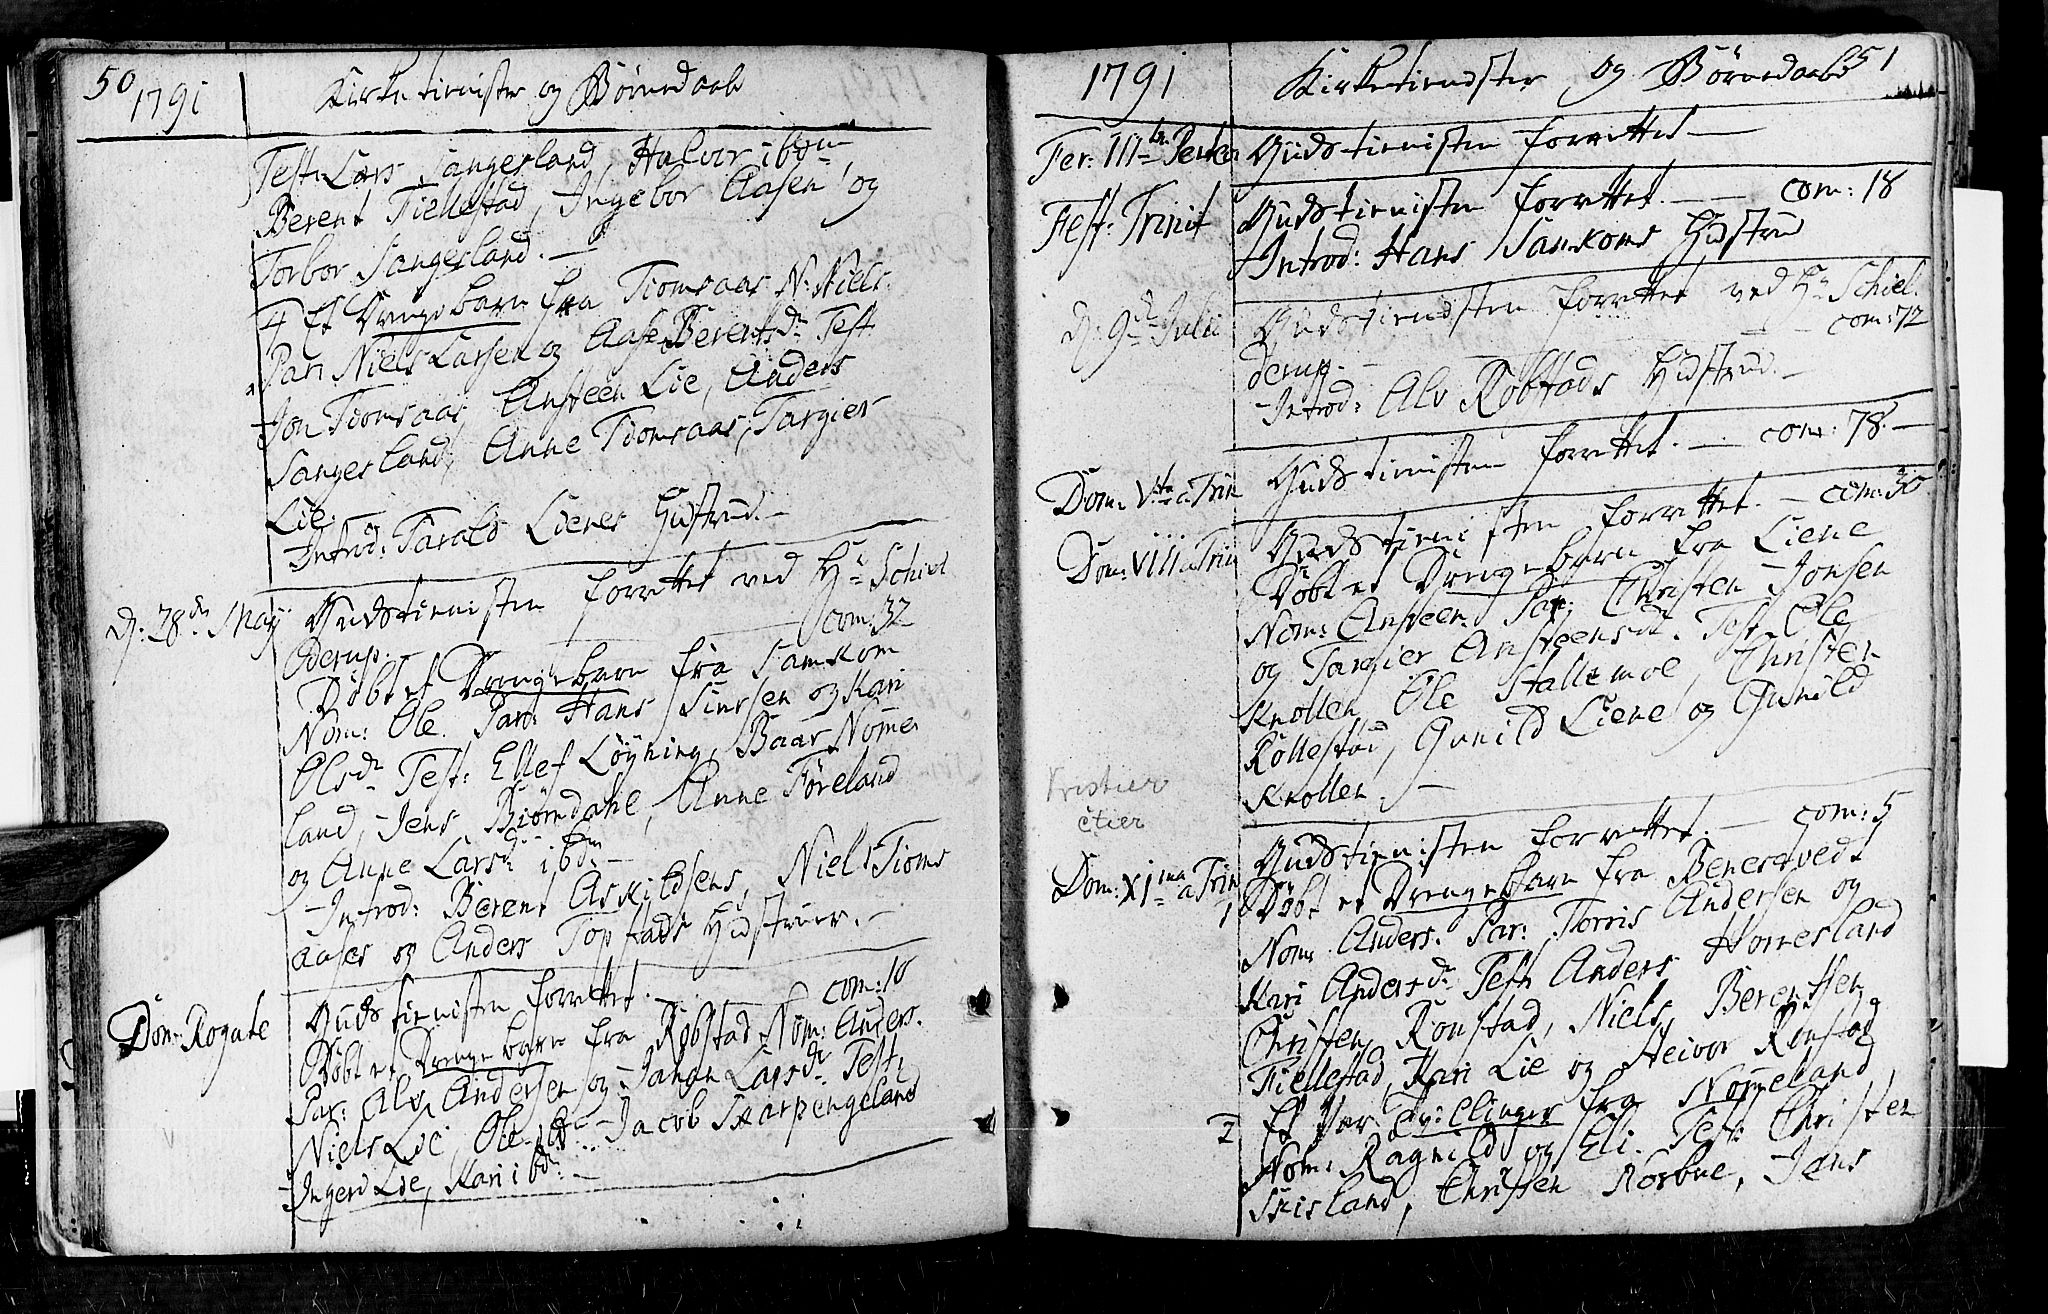 50
1791
Kirketienister og Børnedaab
Test: Lars Sangesland, Halvor ibdm
Berent Fiellestad, Ingebor Aasen, og
Torbor Sangesland. —
4 Et Drengebarn fra Tiomsaas N: Niels.
Par: Niels Larsen og Aase Berentsdr Test:
Jon Tiomsaas, Ansteen Lie, Anders
Sangesland, Anne Tiomsaas, Targier
Lie.
Introd: Taralds Lienes Hustrud. —
d: 28de Maÿ Gudstienisten forrettet ved Hr Schiel
derup. — com: 32
Døbt et Drengebarn fra Samkom
Nom: Ole. Par: Hans Sinsen og Kari
Olsdr Test: Ellef Løyning, Baar Nome
land, Jens Biørndahl, Anne Føreland
og Anne Larsdr ibdm —
Introd: Berent Askildsens, Niels Tioms
aases og Anders Topstads Hustruer. —
Dom: Rogate Gudstienisten forrettet. — com: 10
Døbt et Drengebarn fra Røbstad Nom: Anders.
Par: Alv Andersen og Larsdr Test:
Niels Lie, Ole Jacob Skarpengeland
Ingerd Lie, Kari ibdm —
51
1791
Kirketienster og Børnedaab
Fer: III Pentec Gudstienisten forrettet —
Fest: Trinit Gudstienisten forrettet. — — com: 18
Introd: Hans Samkoms Hustrud
d: 9de Julii Gudstiensten forrettet ved Hr Schiel
derup. — — com: 72
Introd: Alv Røbstads Hustrud. —
Dom: Vta a Trin Gudstienisten forrettet. — com: 78. —
Dom: VIII a Trin Gudstienisten forrettet. — com: 30
Døbt et Drengebarn fra Liene
Nom: Ansteen. Par: Christen Jonsen
og Targier Ansteensdr. Test: Ole
Knollen, Ole Stallemoe, Christen
Røllestad, Gunild Liene og Gunild
Knollen. —
Kristier
etier
Dom: XIma a Trin Gudstienisten forrettet. — com: 5
1 Døbt et Drengebarn fra Benestvedt
Nom: Anders. Par: Torris Andersen og
Kari Andersdr Test: Anders Homesland
Christen Ronstad, Niels Berentsen
Fiellestad, Kari Lie og Heivor Ronstad
2 Et Par Tvillinger fra Nomeland,
Nom: Ragnild og Eli. Test: Christen
Skisland, Christen Rosbue, Jens